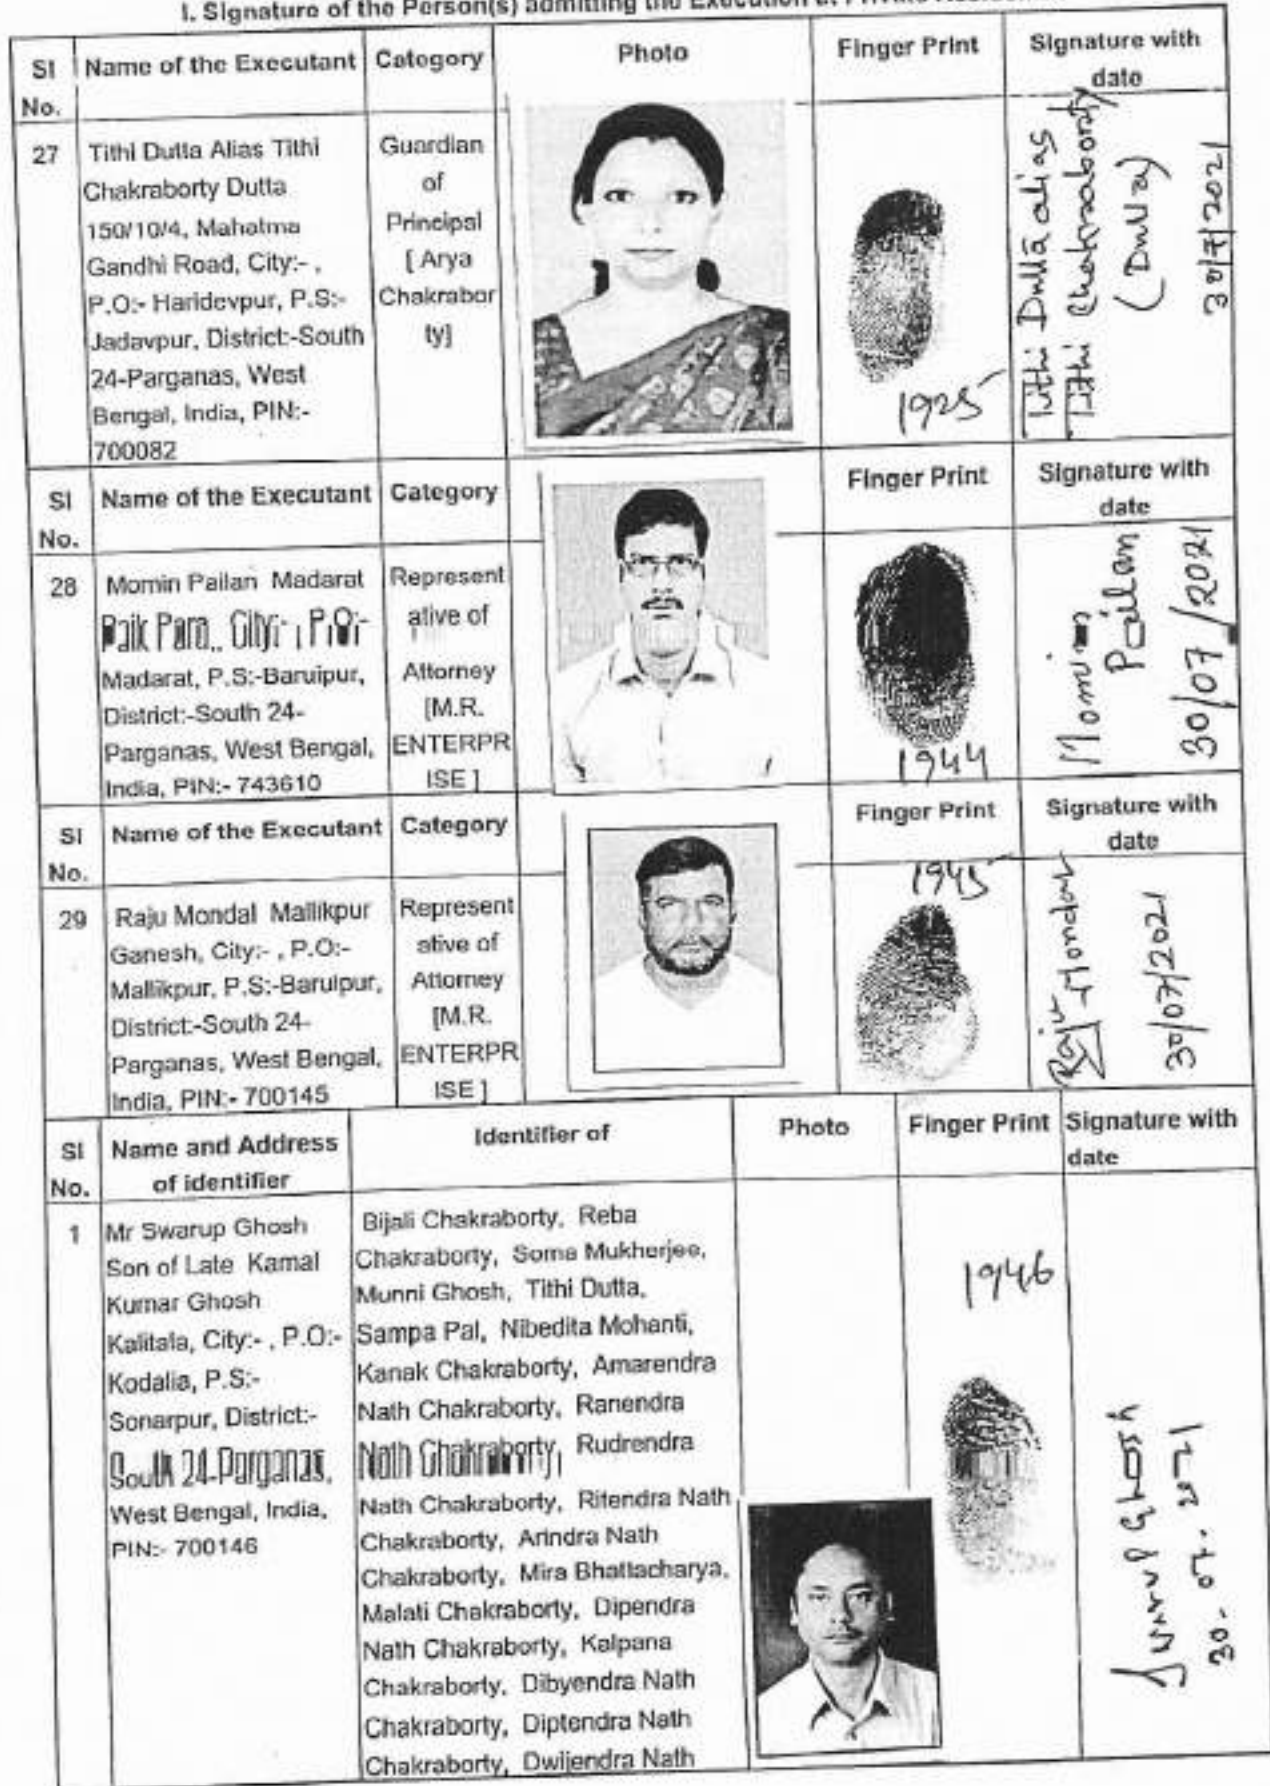 I. Signature of the Person(s) admitting the Execution at Private
Sl No. Name of the Executant Category Photo Finger Print Signature with date
27
Tithi Dutta Alias Tithi
Chakraborty Dutta
150/10/4, Mahatma
Gandhi Road, City:- ,
P.O:- Haridevpur, P.S:-
Jadavpur, District:-South
24-Parganas, West
Bengal, India, PIN:-
700082
Guardian
of
Principal
[ Arya
Chakrabor
ty]
1925
Tithi Dutta alias
Tithi Chakraborty
(Dutta)
30/7/2021
Sl No. Name of the Executant Category Finger Print Signature with date
28
Momin Pailan Madarat
Paik Para,, City:- , P.O:-
Madarat, P.S:-Baruipur,
District:-South 24-
Parganas, West Bengal,
India, PIN:- 743610
Represent
ative of
Attorney
[M.R.
ENTERPR
ISE ]
1944
Momin
Pailan
30/07/2021
Sl No. Name of the Executant Category Finger Print Signature with date
29
Raju Mondal Mallikpur
Ganesh, City:- , P.O:-
Mallikpur, P.S:-Baruipur,
District:-South 24-
Parganas, West Bengal,
India, PIN:- 700145
Represent
ative of
Attorney
[M.R.
ENTERPR
ISE ]
1945
Raju Mondal
30/07/2021
Sl No. Name and Address of identifier Identifier of Photo Finger Print Signature with date
1
Mr Swarup Ghosh
Son of Late Kamal
Kumar Ghosh
Kalitala, City:- , P.O:-
Kodalia, P.S:-
Sonarpur, District:-
South 24-Parganas,
West Bengal, India,
PIN:- 700146
Bijali Chakraborty, Reba
Chakraborty, Soma Mukherjee,
Munni Ghosh, Tithi Dutta,
Sampa Pal, Nibedita Mohanti,
Kanak Chakraborty, Amarendra
Nath Chakraborty, Ranendra
Nath Chakraborty, Rudrendra
Nath Chakraborty, Ritendra Nath
Chakraborty, Arindra Nath
Chakraborty, Mira Bhattacharya,
Malati Chakraborty, Dipendra
Nath Chakraborty, Kalpana
Chakraborty, Dibyendra Nath
Chakraborty, Diptendra Nath
Chakraborty, Dwijendra Nath
1946
Swarup Ghosh
30-07-2021